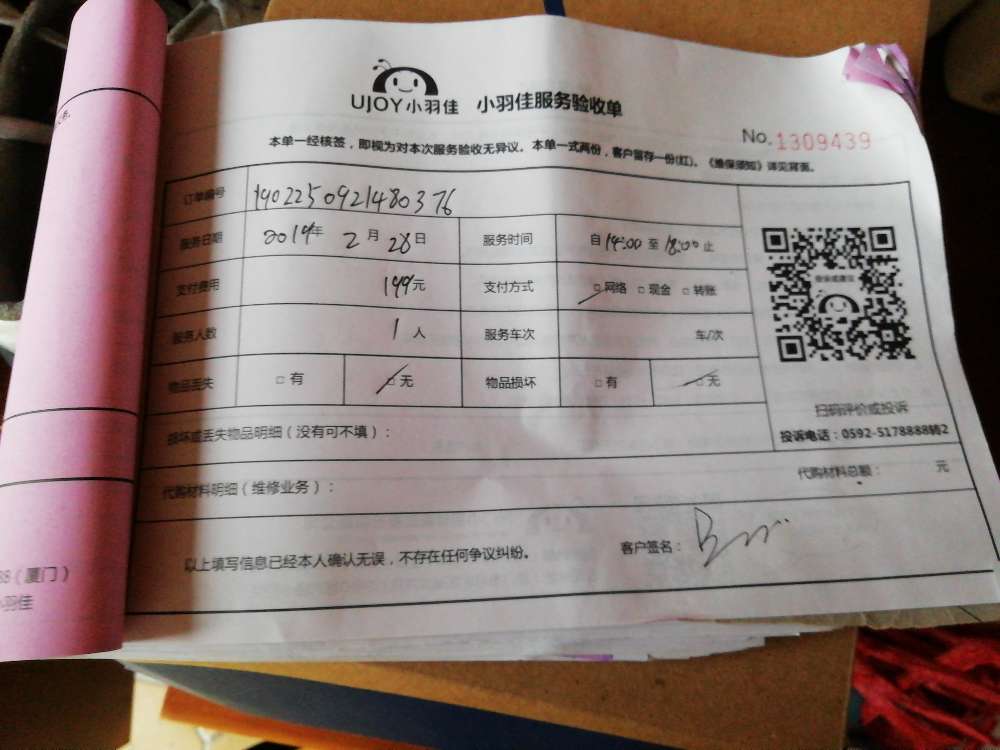 UJOY小羽佳 小羽佳服务验收单
No.1309439
本单一经核签，即视为对本次服务验收无异议。本单一式两份，客户留存一份(红)。《维保须知》详见背面。
订单编号 190225092148 0376
服务日期 2019年 2月 28日 服务时间 自14:00 至 18:00 止
支付费用 199元 支付方式 □网络 □现金 □转账
服务人数 1人 服务车次 车/次
物品丢失 □有 □无 物品损坏 □有 □无
扫码评价或投诉
投诉电话：0592-5178888转2
损坏或丢失物品明细（没有可不填）：
代购材料明细（维修业务）： 代购材料总额： 元
以上填写信息已经本人确认无误，不存在任何争议纠纷。 客户签名：
（厦门）
小羽佳